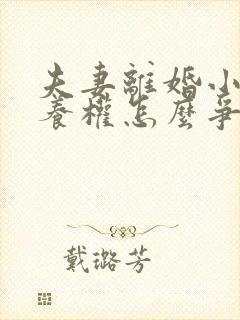 夫妻離婚小
養權怎麼爭
戴璐芳